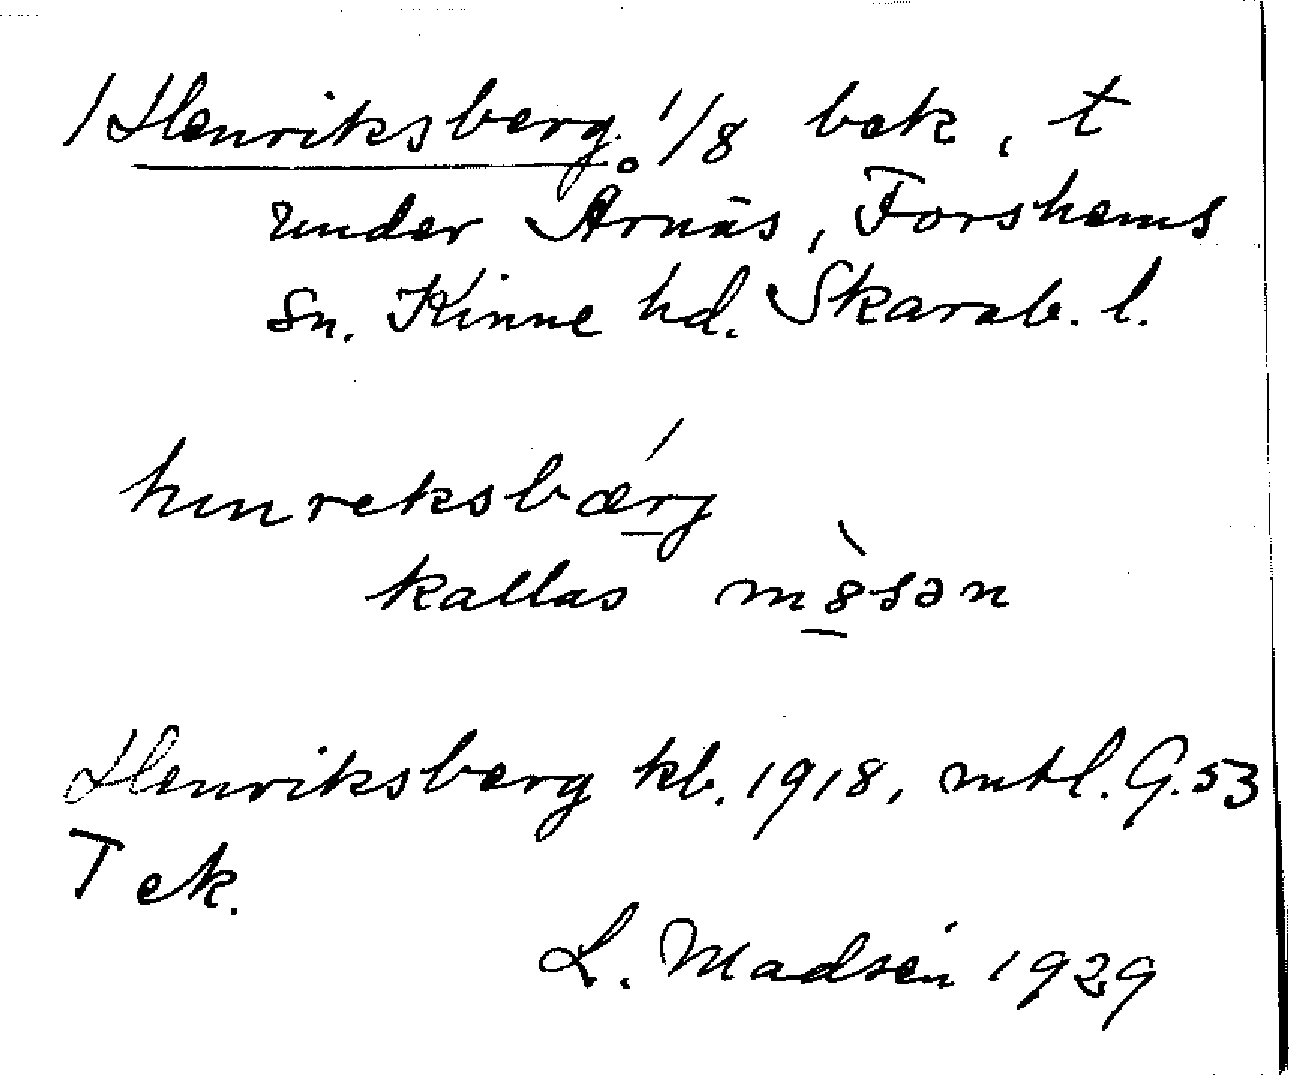 / Henriksberg. 1/8 bok, t
under Årnäs, Forshems
sn. Kinne hd. Skarab. l.
hinreksbærg
kallas mòsən
Henriksberg kb. 1918, mtl. G. 53
T ek.
L. Madsén 1929